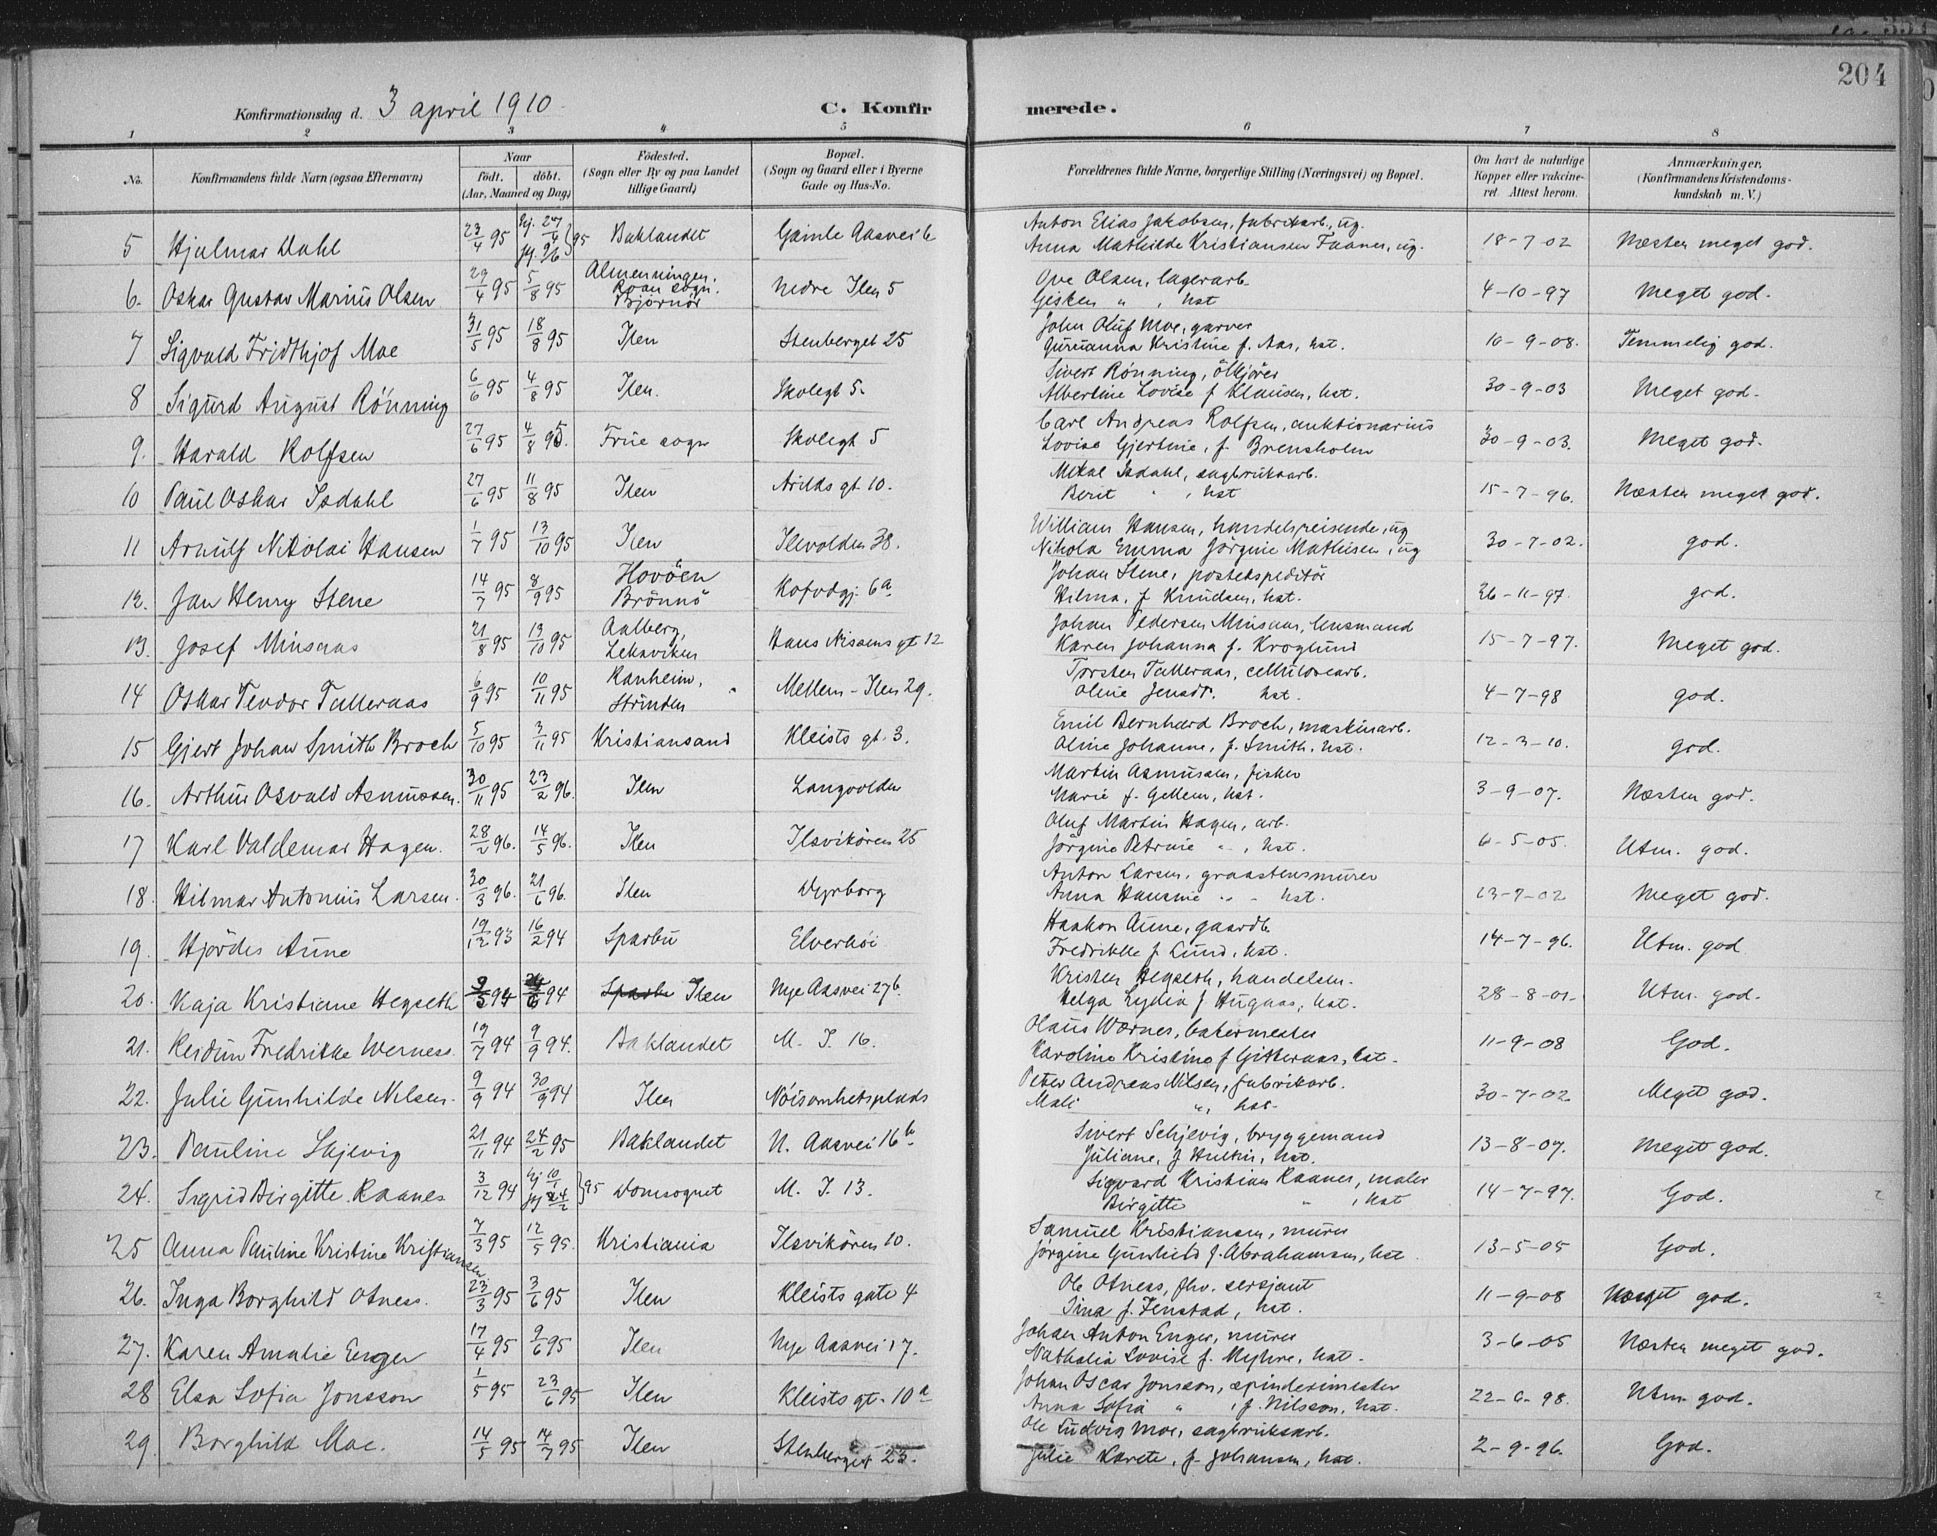 204
Konfirmationsdag d. 3 april 1910. C. Konfirmerede.
1 2 3 4 5 6 7 8
No. Konfirmandens fulde Navn (ogsaa Efternavn) Naar født. døbt. (Aar, Maaned og Dag) Fødested. (Sogn eller By og paa Landet tillige Gaard) Bopæl. (Sogn og Gaard eller i Byerne Gade og Hus-No. Forældrenes fulde Navne, borgerlige Stilling (Næringsvei) og Bopæl. Om havt de naturlige Kopper eller vakcineret. Attest herom. Anmærkninger. (Konfirmandens Kristendomskundskab m. V.)
5 Hjalmar Dahl 23/4 95 hj. 27/4 95 Baklandet Gamle Aasvei 6 Anton Elias Jakobsen, fabrikarb., ug.
Anna Mathilde Kristiansen Faanes, ug. 18-7-02 Næsten meget god.
6. Oskar Gustav Marius Olsen 29/4 95 5/8 95 Almenningen, Roan sogn. Bjørnør Nedre Ilen 5 Ove Olsen, lagerarb.
Gisken " , hst 4-10-97 Meget god.
7 Sigvald Fridthjof Moe 31/5 95 18/8 95 Ilen Stenberget 25 John Oluf Moe, garver
Guruanna Kristine f. Aas, hst. 10-9-08. Temmelig god.
8 Sigurd August Rönning 6/6 95 4/8 95 Ilen. Skolegt 5. Sivert Rönning, ölkjörer
Albertine Lovise f Klausen, hst. 30-9-03 Meget god.
9. Harald Rolfsen 27/6 95 4/8 95. Frue sogn Skolegt 5 Carl Andreas Rolfsen, auktionarius
Lovise Gjertine, f. Brensholm 30-9-03. Meget god.
10 Paul Oskar Isdahl 27/6 95 11/8 95 Ilen Arilds gt. 10. Mikal Isdahl, sagbruksarb.
Berit " , hst 15-7-96. Næsten meget god.
11 Arnulf Nikolai Hansen 1/7 95 13/10 95 Ilen Ilevolden 38. William Hansen, handelsreisende, ug
Nikola Emma Jörgine Mathisen, ug 30-7-02. god.
12. Jan Henry Stene 14/7 95 8/9 95 Hovöen Brönnö Kofodgj. 6a Johan Stene, postekspeditör
Hilma, f Knudsen, hst. 26-11-97. god.
13. Josef Minsaas 21/8 95 13/10 95 Aalberg, Leksviken Hans Nissens gt 12 Johan Pedersen Minsaas, husmand
Karen Johanna f. Kroglund 15-7-97. Meget god.
14 Oskar Teodor Talleraas 6/9 95 10/11 95 Ranheim, Strinden Mellem-Ilen 29. Torsten Talleraas, cellulosearb.
Oline Jensdr. hst. 4-7-98 god.
15 Gjert Johan Smith Broch 5/10 95 3/11 95 Kristiansand Kleists gt. 3. Emil Bernhard Broch, maskinarb.
Aline Johanne, f. Smith, hst. 12-3-10. god.
16. Arthur Osvald Asmussen. 30/11 95 23/2 96. Ilen Langvolden Martin Asmussen, fisker
Marie f. Gellein, hst. 3-9-07. Næsten god.
17 Karl Valdemar Hagen. 28/2 96. 14/5 96. Ilen Ilsvikören 25 Oluf Martin Hagen, arb.
Jörgine Petrine " , hst. 6-5-05. Utm. god.
18. Hilmar Antonius Larsen. 30/3 96. 21/6 96. Ilen Vyrborg Anton Larsen, graastensmurer
Anna Hansine " - hst. 23-7-02 Meget god.
19. Hjördis Aune 19/12 93 16/2 94 Sparbu Elverhöi Haakon Aune, gaardb.
Fredrikke f. Lund, hst. 14-7-96. Utm. god
20. Kaja Kristiane Hegseth 9/3 94 24/6 94 Sparbu Ilen Nye Aasvei 27b. Kristen Hegseth, handelsm.
Helga Lydia f. Hugaas, hst. 28-8-01. Utm. god.
21. Reidun Fredrikke Werness. 19/7 94 9/9 94. Baklandet M. I. 16. Olaus Wærnes, bakermester
Karoline Kristine f Gitteraas, hst. 11-9-08 God.
22. Julie Gunhilde Nilsen. 9/9 94 30/9 94 Ilen Nöisomhetsplads Peter Andreas Nilsen, fabrikarb.
Mali " , hst. 30-7-02 Meget god.
23. Pauline Skjevig 21/11 94 24/2 95 Baklandet N. Aasvei 16b Sivert Schjevig, bryggemand
Juliane, f Hultin, hst. 13-8-07. Meget god.
24. Sigrid Birgitte Raanes 3/12 94 hj 10/1 95 Domsognet M. I. 13. Sigvard Kristian Raanes, maler
Birgitte " , hst 14-7-97. God.
25 Anna Pauline Kristine Kristiansen 7/3 95 12/5 95. Kristiania Ilsvikören 10. Samuel Kristiansen, murer
Jörgine Gunhild f. Abrahamsen, hst. 13-5-05 God.
26. Inga Borghild Otness. 23/3 95 3/6 95 Ilen Kleists gate 4 Ole Otness, fhv. sersjant
Sina f. Fenstad, hst. 11-9-08 Meget god.
27. Karen Amalie Enger 17/4 95 9/6 95 Ilen Nye Aasvei 17. Johan Anton Enger, murer
Nathalia Lovise f. Myhre, hst. 3-6-05 Næsten meget god.
28 Elsa Sofia Jonsson 1/5 95 23/6 95 Ilen Kleists gt. 10a Johan Oscar Jonsson, spinderimester
Anna Sofia " , f. Nilsson, hst. 22-6-98. Utm god.
29. Borghild Moe. 14/5 95 14/7 95 Ilen Stenberget 23. Ole Ludvig Moe, sagbruksarb.
Julie Karete, f. Johansen, hst. 2-9-96. God.